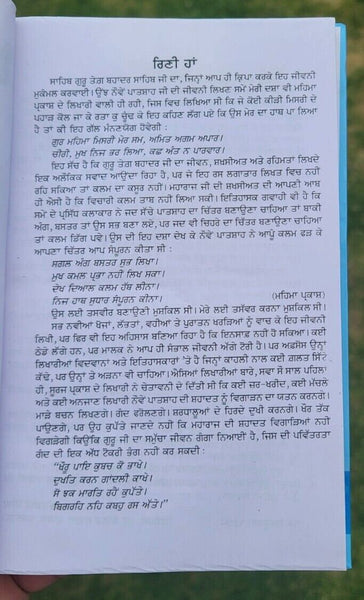 ਰਿਣੀ ਹਾਂ
ਸਾਹਿਬ ਗੁਰੂ ਤੇਗ਼ ਬਹਾਦਰ ਸਾਹਿਬ ਜੀ ਦਾ, ਜਿਨ੍ਹਾਂ ਆਪ ਹੀ ਕ੍ਰਿਪਾ ਕਰਕੇ ਇਹ ਜੀਵਨੀ
ਮੁਕੰਮਲ ਕਰਵਾਈ। ਉਂਝ ਨੌਵੇਂ ਪਾਤਸ਼ਾਹ ਜੀ ਦੀ ਜੀਵਨੀ ਲਿਖਣ ਸਮੇਂ ਮੇਰੀ ਦਸ਼ਾ ਵੀ ਮਹਿਮਾ
ਪ੍ਰਕਾਸ਼ ਦੇ ਲਿਖਾਰੀ ਵਾਲੀ ਹੀ ਰਹੀ, ਜਿਸ ਵਿਚ ਲਿਖਿਆ ਸੀ ਕਿ ਜੇ ਕੋਈ ਕੀੜੀ ਮਿਸਰੀ ਦੇ
ਪਹਾੜ ਕੋਲ ਜਾ ਕੇ ਰਤਾ ਕੁ ਚੂੰਢ ਕੇ ਇਹ ਕਹਿਣ ਲੱਗ ਪਏ ਕਿ ਉਸ ਮੇਰ ਦਾ ਹਾਥ ਪਾ ਲਿਆ
ਹੈ ਤਾਂ ਕੀ ਇਹ ਗੱਲ ਮੰਨਣਯੋਗ ਹੋਵੇਗੀ :
ਗੁਰ ਮਹਿਮਾ ਮਿਸਰੀ ਮੇਰ ਸਮ, ਅਮਿਤ ਅਗਮ ਅਪਾਰ।
ਚੀਟੀ, ਮੁਖ ਨਿਜ ਭਰ ਲਿਆ, ਕਛੁ ਅੰਤ ਨ ਪਾਰਵਾਰ।
ਇਹ ਸੱਚ ਹੈ ਕਿ ਗੁਰੂ ਤੇਗ਼ ਬਹਾਦਰ ਜੀ ਦਾ ਜੀਵਨ, ਸ਼ਖ਼ਸੀਅਤ ਅਤੇ ਰਹਿਮਤਾਂ ਲਿਖਦੇ
ਇਕ ਅਲੌਕਿਕ ਸਵਾਦ ਆਉਂਦਾ ਰਿਹਾ ਹੈ, ਪਰ ਜੇ ਇਹ ਰਸ ਲਗਾਤਾਰ ਲਿਖਤ ਵਿਚ ਨਹੀਂ
ਰਹਿ ਸਕਿਆ ਤਾਂ ਕਲਮ ਦਾ ਕਸੂਰ ਨਹੀਂ। ਮਹਾਰਾਜ ਜੀ ਦੀ ਸ਼ਖ਼ਸੀਅਤ ਦੀ ਆਪਣੀ ਆਬ
ਹੀ ਐਸੀ ਹੈ ਕਿ ਵਿਚਾਰੀ ਕਲਮ ਤਾਬ ਨਹੀਂ ਲਿਆ ਸਕੀ। ਇਤਿਹਾਸਕ ਗਵਾਹੀ ਵੀ ਹੈ ਕਿ
ਸਮੇਂ ਦੇ ਪ੍ਰਸਿੱਧ ਕਲਾਕਾਰ ਨੇ ਜਦ ਸੱਚੇ ਪਾਤਸ਼ਾਹ ਦਾ ਚਿੱਤਰ ਬਣਾਉਣਾ ਚਾਹਿਆ ਤਾਂ ਬਾਕੀ
ਅੰਗ, ਬਸਤਰ ਤਾਂ ਉਸ ਸਭ ਬਣਾ ਲਏ, ਪਰ ਜਦ ਵੀ ਚਿਹਰੇ ਦਾ ਚਿੱਤਰ ਬਣਾਉਣਾ ਚਾਹਿਆ
ਤਾਂ ਕਲਮ ਡਿੱਗ ਪਵੇ। ਉਸ ਦੀ ਇਹ ਦਸ਼ਾ ਦੇਖ ਕੇ ਨੌਵੇਂ ਪਾਤਸ਼ਾਹ ਨੇ ਆਪੂੰ ਕਲਮ ਫੜ ਕੇ
ਆਪਣਾ ਚਿੱਤਰ ਆਪ ਸੰਪੂਰਨ ਕੀਤਾ ਸੀ :
ਸਗਲ ਅੰਗ ਬਸਤਰ ਸੁਭ ਲਿਖਾ।
ਮੁਖ ਕਮਲ ਪ੍ਰਭਾ ਨਹੀਂ ਲਿਖ ਸਕਾ।
ਦੇਖ ਦਿਆਲ ਕਲਮ ਹੱਥ ਲੀਨਾ।
ਨਿਜ ਹਾਥ ਸੁਧਾਰ ਸੰਪੂਰਨ ਕੀਨਾ। (ਮਹਿਮਾ ਪ੍ਰਕਾਸ਼)
ਉਸ ਲਈ ਤਸਵੀਰ ਬਣਾਉਣੀ ਮੁਸ਼ਕਿਲ ਸੀ। ਮੇਰੇ ਲਈ ਤਸੱਵਰ ਕਰਨਾ ਮੁਸ਼ਕਿਲ ਸੀ।
ਸਭ ਨਵੀਆਂ ਖੋਜਾਂ, ਲੱਭਤਾਂ, ਵਹੀਆਂ ਤੇ ਪੁਰਾਤਨ ਖਰੜਿਆਂ ਨੂੰ ਵਾਚ ਕੇ ਇਹ ਜੀਵਨੀ
ਲਿਖੀ, ਪਰ ਫਿਰ ਵੀ ਇਹ ਅਹਿਸਾਸ ਬਣਿਆ ਰਿਹਾ ਹੈ ਕਿ ਇਨਸਾਫ਼ ਨਹੀਂ ਹੋ ਸਕਿਆ। ਕਈ
ਠੇਡੇ ਲੱਗੇ ਹਨ, ਪਰ ਮਾਲਕ ਨੇ ਆਪ ਹੀ ਸੰਭਾਲ ਜੀਵਨੀ ਅੱਗੇ ਟੋਰੀ ਹੈ। ਪਰ ਅਫ਼ਸੋਸ ਉਨ੍ਹਾਂ
ਲਿਖਾਰੀਆਂ ਵਿਦਵਾਨਾਂ ਅਤੇ ਇਤਿਹਾਸਕਾਰਾਂ 'ਤੇ ਹੈ ਜਿਨ੍ਹਾਂ ਕਾਹਲੀ ਨਾਲ ਕਈ ਗਲਤ ਸਿੱਟੇ
ਕੱਢੇ, ਪਰ ਉਨ੍ਹਾਂ 'ਤੇ ਅੜਨਾ ਵੀ ਚਾਹਿਆ। ਐਸਿਆਂ ਲਿਖਾਰੀਆਂ ਬਾਰੇ, ਸਵਾ ਸੌ ਸਾਲ ਪਹਿਲਾਂ
ਹੀ, ਸੂਰਜ ਪ੍ਰਕਾਸ਼ ਦੇ ਲਿਖਾਰੀ ਨੇ ਚੇਤਾਵਨੀ ਦੇ ਦਿੱਤੀ ਸੀ ਕਿ ਕਈ ਜ਼ਰ-ਖਰੀਦ, ਕਈ ਮੱਚਲੇ
ਅਤੇ ਕਈ ਅਨਜਾਣ ਲਿਖਾਰੀ ਨੌਵੇਂ ਪਾਤਸ਼ਾਹ ਦੀ ਸ਼ਹਾਦਤ ਨੂੰ ਵਿਗਾੜਨ ਦਾ ਯਤਨ ਕਰਨਗੇ।
ਮਾੜੇ ਬਚਨ ਲਿਖਣਗੇ। ਗੰਦ ਵਰੋਲਣਗੇ। ਸ਼ਰਧਾਲੂਆਂ ਦੇ ਹਿਰਦੇ ਦੁਖੀ ਕਰਨਗੇ। ਖੌਰ ਤੱਕ
ਪਾਉਣਗੇ, ਪਰ ਉਹ ਕੁਪੱਤੇ ਜਾਣਦੇ ਨਹੀਂ ਕਿ ਮਹਾਰਾਜ ਦੀ ਸ਼ਹਾਦਤ ਵਿਗਾੜਿਆਂ ਨਹੀਂ
ਵਿਗੜੇਗੀ ਕਿਉਂਕਿ ਗੁਰੂ ਜੀ ਦਾ ਸਮੁੱਚਾ ਜੀਵਨ ਗੰਗਾ ਨਿਆਈਂ ਹੈ, ਜਿਸ ਦੀ ਪਵਿੱਤਰਤਾ
ਗੰਦ ਦੀ ਇਕ ਅੱਧ ਟੋਕਰੀ ਭੰਗ ਨਹੀਂ ਕਰ ਸਕਦੀ :
"ਖੌਰੂ ਪਾਇ ਕੁਬਚ ਕੋ ਭਾਖੇ।
ਦੁਖਤਿ ਕਰਨ ਗਾਂਦਲੀ ਕਾਖੇ।
ਸੋ ਝਕ ਮਾਰਤਿ ਰਹੈਂ ਕੁਪੱਤੇ।
ਬਿਗਰਹਿ ਨਹਿ ਕਬਹੁ ਰਸ ਅੱਤੇ।"